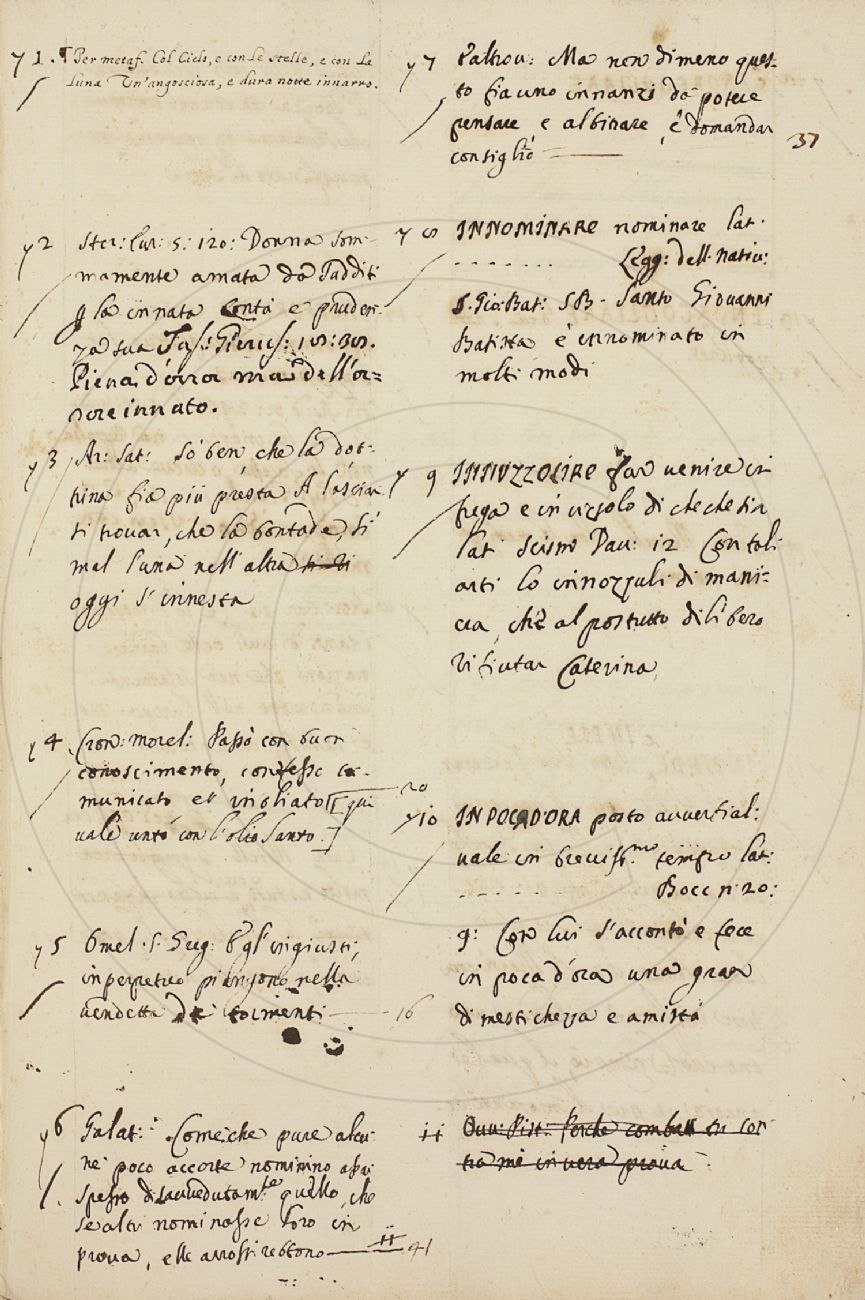 y 1. ¶ Per metaf. Col Cielo, e con le stelle, e con la
Luna Un'angosciosa, e dura notte innarro.
y 2 Stor: Eur: 5: 120: Donna som-
mamente amata da Tadditi
la innata bontà e pruden-
za sua
Piena d'ira ma dell'or-
rore innato.
y 3 Ar: Sat: So ben che la dot-
trina fia più presta A lasciar-
si trovar, che la bontade, sì
mal l'una nell'altra
oggi s'innesta
y 4 Cron: Morel: Passò con buon
conoscimento, confesso co-
municato e innoliato [qui
vale unto con l'olio Santo.]
y 5 Omel. S. Greg: E gl'ingiusti,
in perpetuo piangono nella
vendetta de tormenti 16
y 6 Galat: Come che pure alcu-
ne poco accorte nominino assai
spesso disavvedutam.te quello, che
se altri nominasse loro in
pruova, elle arrossirebbono 11 41
y 7 Ma non dimeno ques-
to fia uno innanzi da potere
pensare e albitrare, e domandar 37
consiglio
y 8 INNOMINARE nominare lat.
. . . . . . . Legg: dell. Nativ:
S. Gio: Bat: S B. Santo Giovanni
Batista è innominato in
molti modi
y 9 INNUZZOLIRE far venire in
frega e in uzzolo di checchesia
lat. Dav: 12 Con tali
arti lo innozzuli di mani-
era, che al postutto diliberò
rifiutar Caterina
20
y 10 IN POCA D'ORA posto avverbial:
vale in breviss.mo tempo lat:
. . . . . . Bocc n: 20:
9: Con lui s'accontò e fece
in poca d'ora una gran
dimestichezza e amistà
11 Ovv: Pist: Perche combatti tu con-
tra me in vera prova